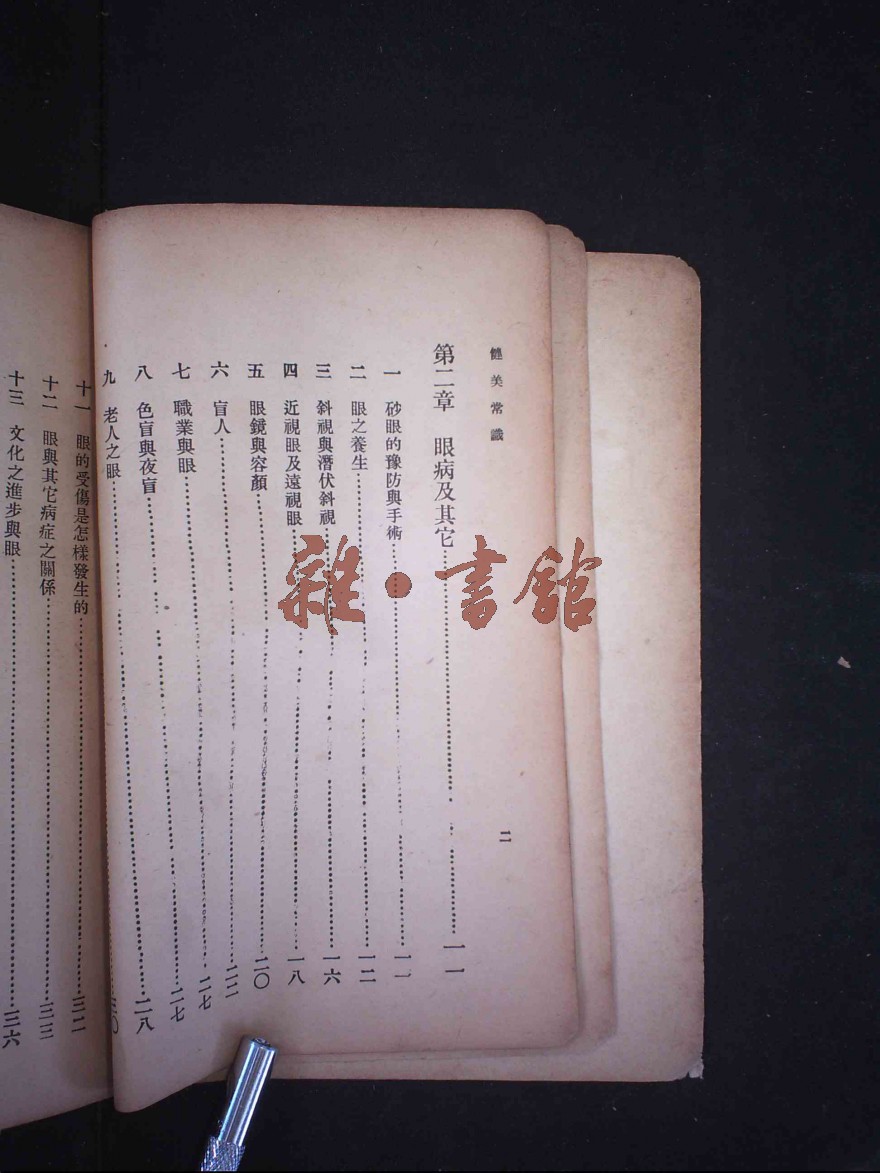 健美常識
第二章 眼病及其它……一一
一 砂眼的豫防與手術……一一
二 眼之養生……一二
三 斜視與潛伏斜視……一六
四 近視眼及遠視眼……一八
五 眼鏡與容顏……二〇
六 盲人……二二
七 職業與眼……二七
八 色盲與夜盲……二七
九 老人之眼……二八
……三〇
十一 眼的受傷是怎樣發生的……三二
十二 眼與其它病症之關係……三三
十三 文化之進步與眼……三六
二
雜·書館